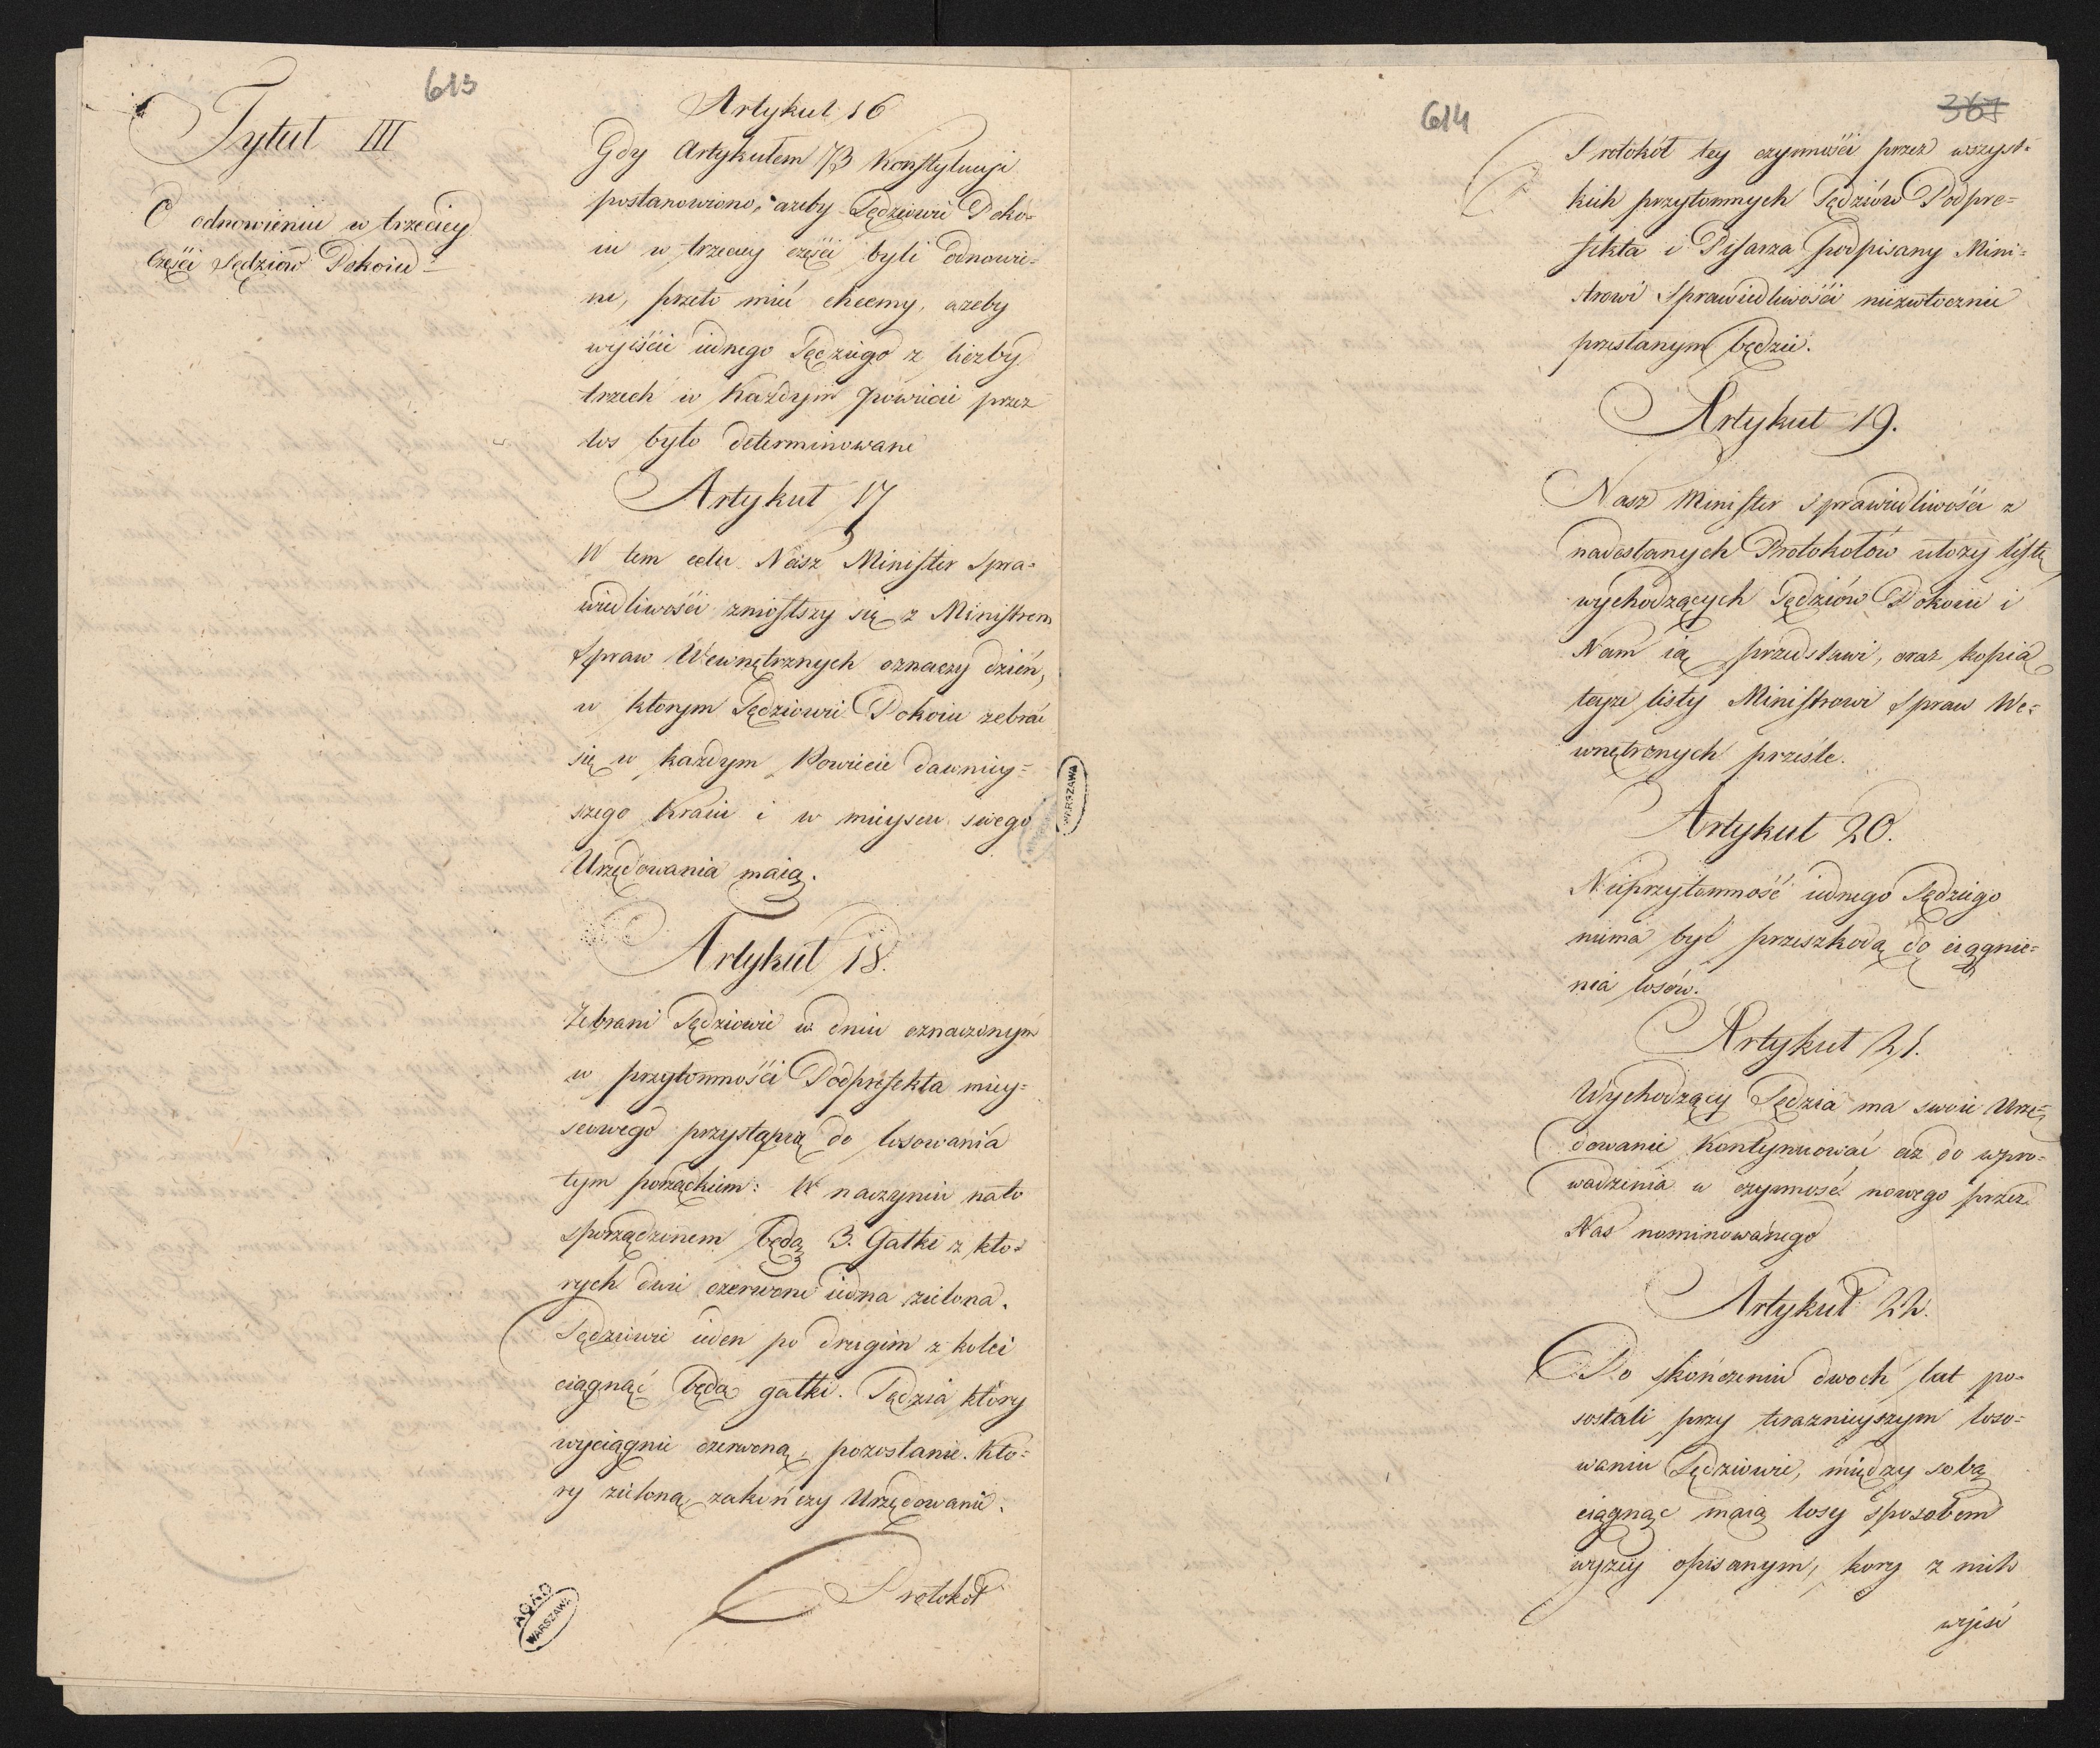 613
Tytuł III
O odnowieniu w trzeciey
Części Sędziów Pokoiu
Artykuł 16
Gdy Artykułem 73 Konstytucyi
postanowiono, ażeby Sędziowie Poko-
iu w trzeciey części byli odnowie-
ni, przeto mieć chcemy, ażeby
wyiście iednego Sędziego z liczby
trzech w każdym Powiecie przez
los było determinowane
Artykuł 17
W tem celu Nasz Minister Spra-
wiedliwości zniosłszy się z Ministrem
Spraw Wewnętrznych oznaczy dzień,
w którym Sędziowie Pokoiu zebrać
się w każdym Powiecie dawniey-
szego Kraiu i w mieyscu swego
Urzędowania maią.
Artykuł 18.
Zebrani Sędziowie w dniu oznaczonym
w przytomności Podprefekta miey-
scowego przystąpią do losowania
tym porządkiem: W naczyniu nato
sporządzonem będą 3. Gałki z któ-
rych dwie czerwone iedna zielona.
Sędziowie ieden po drugim z kolei
ciągnąć będą gałki. Sędzia który
wyciągnie czerwoną, pozostanie. któ-
ry zieloną, zakończy Urzędowanie.
Protokół
AGAD
WARSZAWA
WARSZAWA
614
367
Protokół tey czynności przez wszyst-
kich przytomnych Sędziów Podpre-
fekta i Pisarza podpisany Mini-
strowi Sprawiedliwości niezwłocznie
przesłanym będzie.
Artykuł 19.
Nasz Minister Sprawiedliwości z
nadesłanych Protokołów ułoży listę
wychodzących Sędziów Pokoiu i
Nam ią przedstawi, oraz kopią
teyże listy Ministrowi Spraw We-
wnętrznych prześle.
Artykuł 20.
Nieprzytomność iednego Sędziego
niema być przeszkodą do ciągnie-
nia losów.
Artykuł 21.
Wychodzący Sędzia ma swoie Urzę-
dowanie kontynuować aż do wpro-
wadzenia w czynność nowego przez
Nas nominowanego
Artykuł 22.
Po skończeniu dwóch lat po-
zostali przy teraznieyszym loso-
waniu Sędziowie, między sobą
ciągnąć maią losy sposobem
wyżey opisanym, kory z nich
wyiść